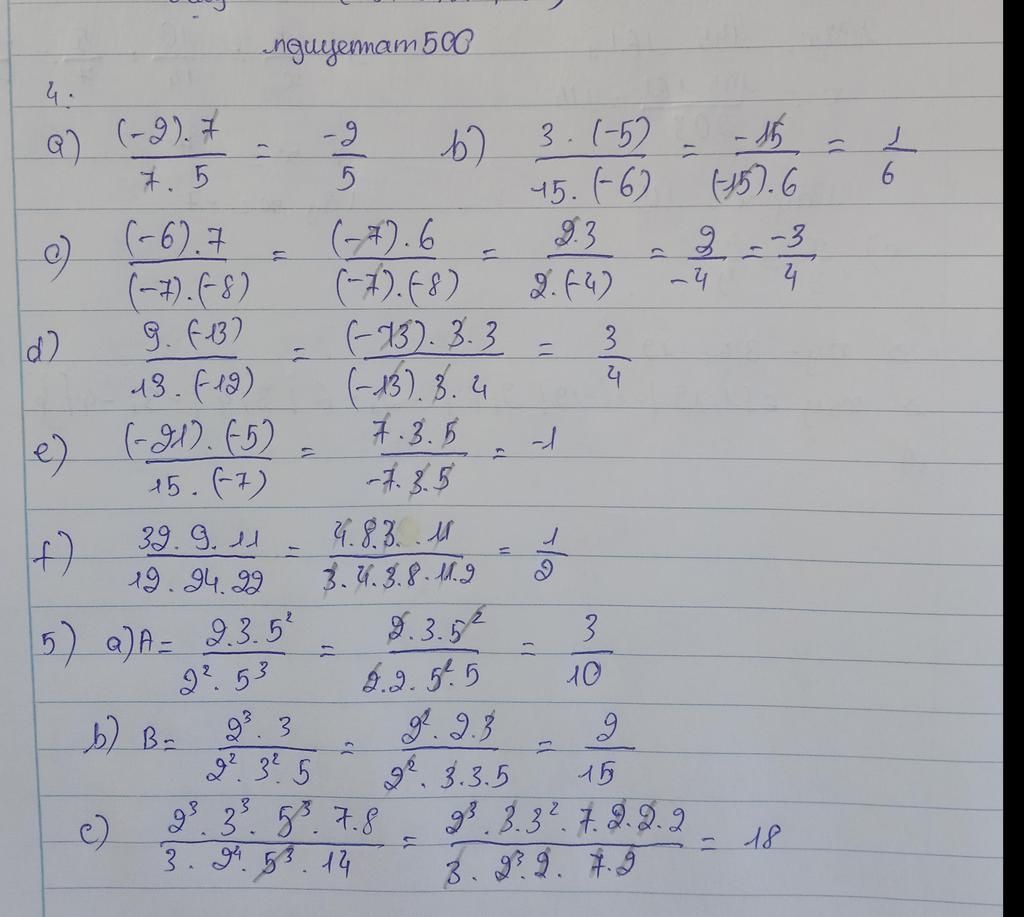 mgiuyemam500
4:
a) \frac{(-2).7}{7.5} = \frac{-2}{5} b) \frac{3.(-5)}{15.(-6)} = \frac{-15}{(-15).6} = \frac{1}{6}
c) \frac{(-6).7}{(-7).(-8)} = \frac{(-7).6}{(-7).(-8)} = \frac{2.3}{2.(-4)} = \frac{2}{-4} = \frac{-3}{4}
d) \frac{9.(-13)}{13.(-12)} = \frac{(-13).3.3}{(-13).3.4} = \frac{3}{4}
e) \frac{(-21).(-5)}{15.(-7)} = \frac{7.3.5}{-7.3.5} = -1
f) \frac{32.9.11}{12.24.22} = \frac{4.8.3..11}{3.4.3.8.11.2} = \frac{1}{2}
5) a) A = \frac{2.3.5²}{2².5³} = \frac{2.3.5²}{2.2.5².5} = \frac{3}{10}
b) B = \frac{2³.3}{2².3².5} = \frac{2².2.3}{2².3.3.5} = \frac{2}{15}
c) \frac{2³.3³.5³.7.8}{3.2⁴.5³.14} = \frac{2³.3.3².7.2.2.2}{3.2³.2.7.2} = 18